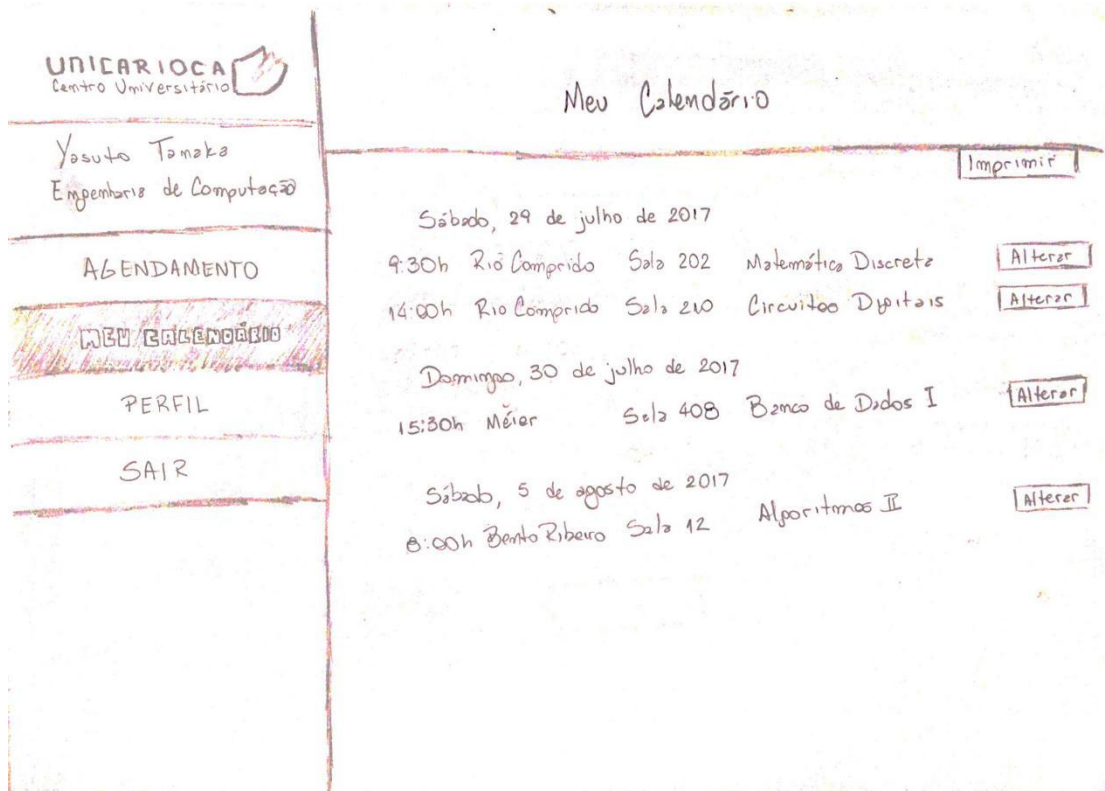 UNICARIOCA
Centro Universitário
Yasuto Tanaka
Engenharia de Computação
AGENDAMENTO
MEU CALENDÁRIO
PERFIL
SAIR
Meu Calendário
Imprimir
Sábado, 29 de julho de 2017
9:30h Rio Comprido Sala 202 Matemática Discreta Alterar
14:00h Rio Comprido Sala 210 Circuitos Digitais Alterar
Domingo, 30 de julho de 2017
15:30h Méier Sala 408 Banco de Dados I Alterar
Sábado, 5 de agosto de 2017
8:00h Bento Ribeiro Sala 12 Algoritmos II Alterar